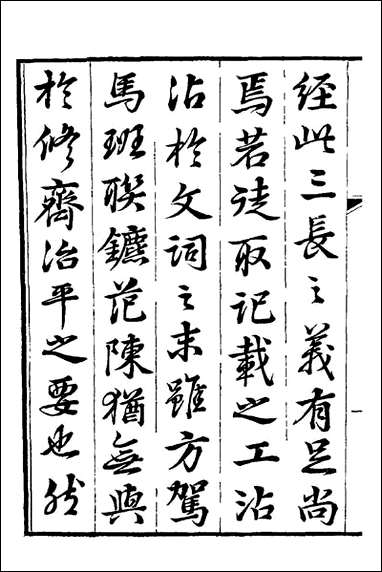 經此三長之義有足尚
焉若徒取記載之工沾
沾於文詞之末雖方駕
馬班聯鑣范陳猶無與
於修齊治平之要也然